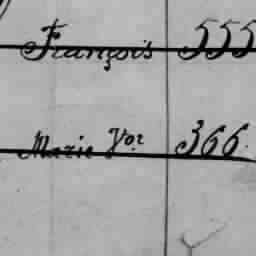 François 555
Marie Vor 366